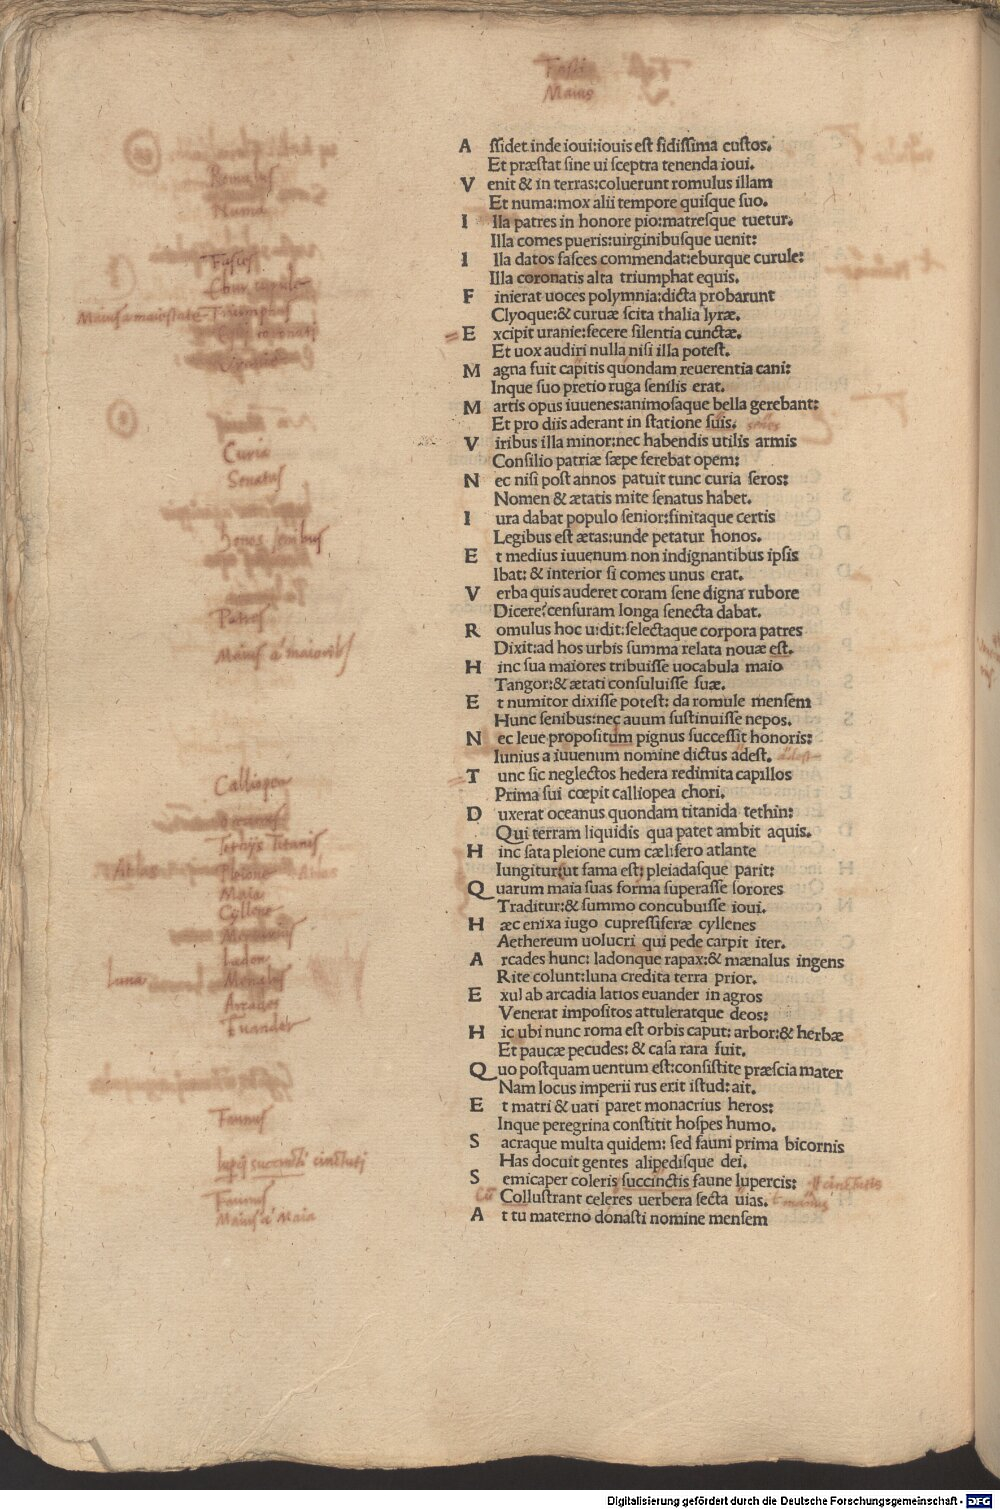 Maius
A ssidet inde ioui:iouis est fidissima custos.
Et præstat sine ui sceptra tenenda ioui.
V enit & in terras:coluerunt romulus illam
Et numa:mox alii tempore quisque suo.
I lla patres in honore pio:matresque tuetur.
Illa comes pueris:uirginibusque uenit:
I lla datos fasces commendat:eburque curule:
Illa coronatis alta triumphat equis.
F inierat uoces polymnia:dicta probarunt
Clyoque:& curuæ scita thalia lyræ.
E xcipit uranie:fecere silentia cunctæ.
Et uox audiri nulla nisi illa potest.
M agna fuit capitis quondam reuerentia cani:
Inque suo pretio ruga senilis erat.
M artis opus iuuenes:animosaque bella gerebant:
Et pro diis aderant in statione suis.
V iribus illa minor:nec habendis utilis armis
Consilio patriæ sæpe ferebat opem:
N ec nisi post annos patuit tunc curia seros:
Nomen & ætatis mite senatus habet.
I ura dabat populo senior:finitaque certis
Legibus est ætas:unde petatur honos.
E t medius iuuenum non indignantibus ipsis
Ibat: & interior si comes unus erat.
V erba quis auderet coram sene digna rubore
Dicere?censuram longa senecta dabat.
R omulus hoc uidit:selectaque corpora patres
Dixit:ad hos urbis summa relata nouæ est.
H inc sua maiores tribuisse uocabula maio
Tangor:& ætati consuluisse suæ.
E t numitor dixisse potest: da romule mensem
Hunc senibus:nec auum sustinuisse nepos.
N ec leue propositum pignus successit honoris:
Iunius a iuuenum nomine dictus adest.
T unc sic neglectos hedera redimita capillos
Prima sui cœpit calliopea chori.
D uxerat oceanus quondam titanida tethin:
Qui terram liquidis qua patet ambit aquis.
H inc sata pleione cum cælifero atlante
Iungitur:ut fama est: pleiadasque parit:
Q uarum maia suas forma superasse sorores
Traditur:& summo concubuisse ioui.
H æc enixa iugo cupressiferæ cyllenes
Aethereum uolucri qui pede carpit iter.
A rcades hunc: ladonque rapax:& mænalus ingens
Rite colunt:luna credita terra prior.
E xul ab arcadia latios euander in agros
Venerat impositos attuleratque deos:
H ic ubi nunc roma est orbis caput: arbor:& herbæ
Et paucæ pecudes: & casa rara fuit.
Q uo postquam uentum est:consistite præscia mater
Nam locus imperii rus erit istud:ait.
E t matri & uati paret monacrius heros:
Inque peregrina constitit hospes humo.
S acraque multa quidem: sed fauni prima bicornis
Has docuit gentes alipedisque dei.
S emicaper coleris succinctis faune lupercis:
Collustrant celeres uerbera secta uias.
A t tu materno donasti nomine mensem
Romulus
Numa
Fasces
Ebur curule
Maius a maiestate Triumphus
Curia
Senatus
honos senibus
Patres
Maius a maioribus
Calliopea
Tethys Titanis
Atlas Pleione Atlas
Maia
Cyllene
Mercurius
Ladon
Luna Menalus
Arcades
Euander
Faunus
luperci succincti cinctuti
Faunus
Maius a Maia
Digitalisierung gefördert durch die Deutsche Forschungsgemeinschaft - DFG